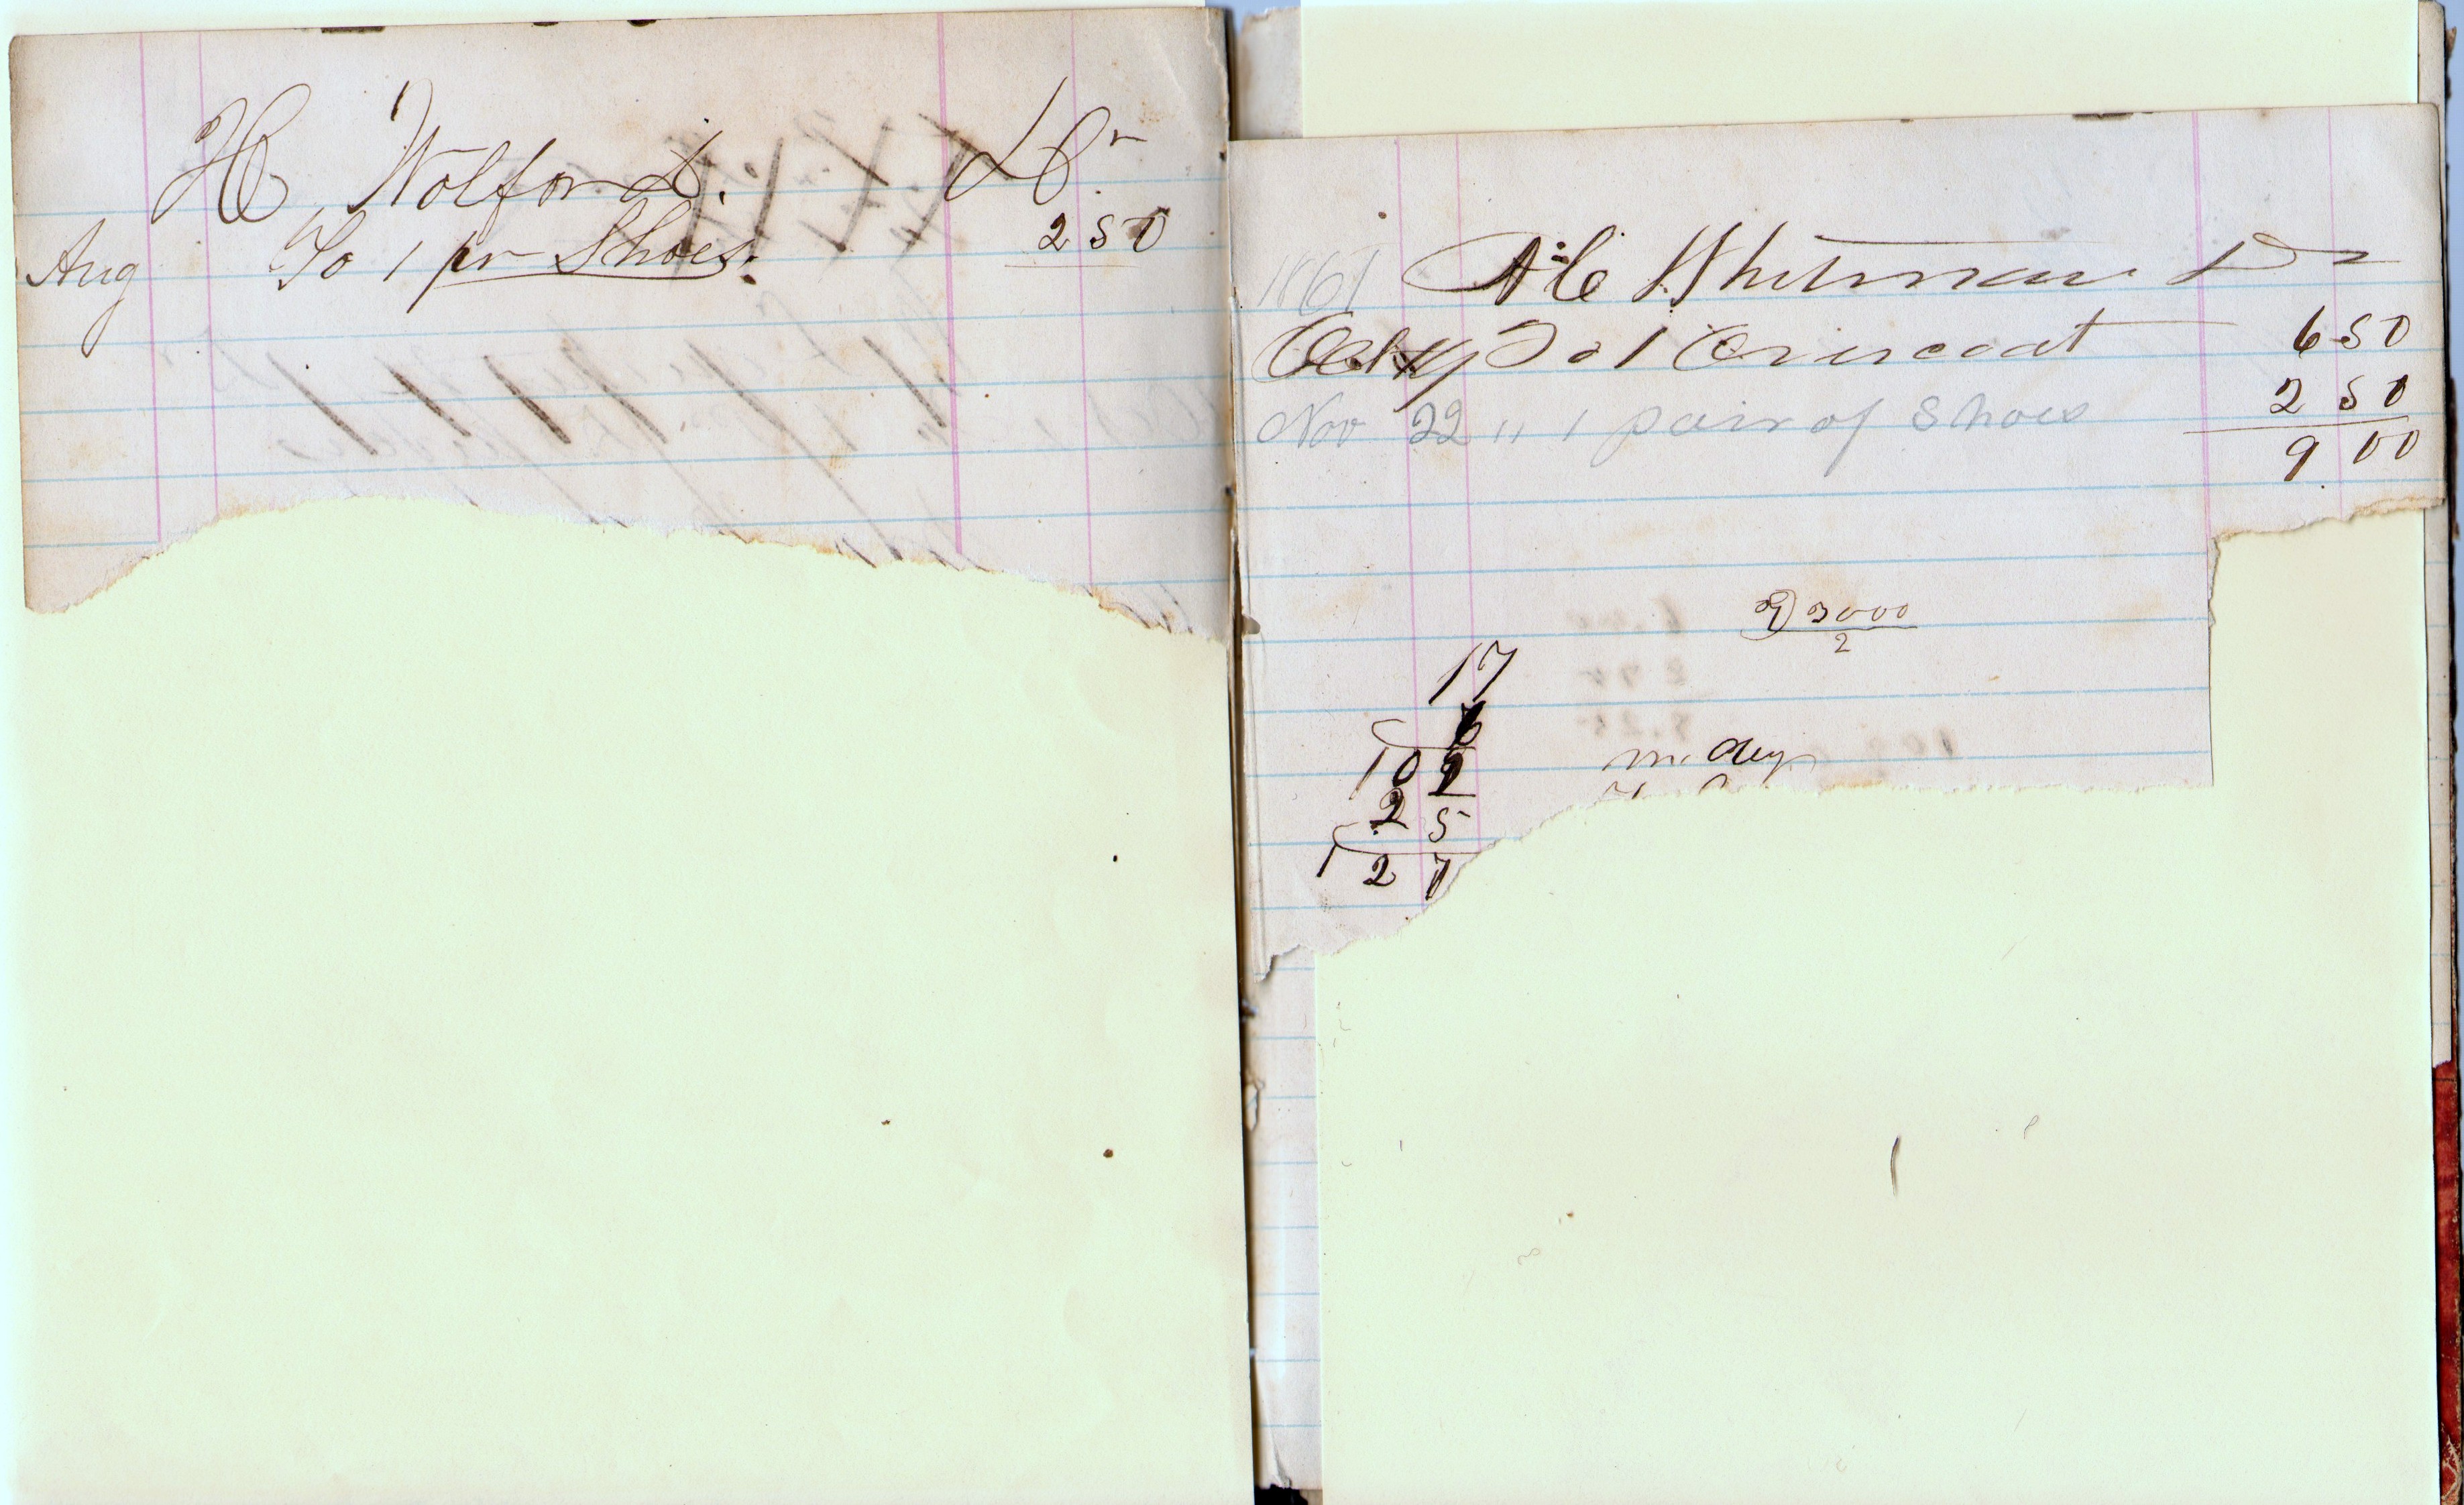 H Wolford. Dr
Aug To 1 pr Shoes. 2 50
1861 A C Whitman Dr
Oct To 1 Overcoat 6 50
Nov 22 " 1 pair of Shoes 2 50
9 00
2) 3000
2
17
6
102
25
127